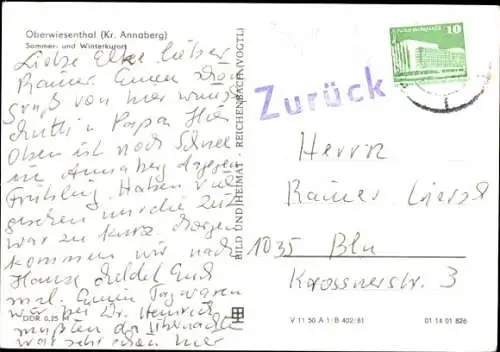 Oberwiesenthal (Kr. Annaberg)
Sommer- und Winterkurort
Liebe Elke lieber
Rainer. Einen schönen
Gruß von hier wünscht
Mutti u. Papa. Hier
Oben ist noch Schnee
in Annaberg dagegen
Frühling. Haben viel
gesehen nur die Zeit
war zu kurz. Morgen
kommen wir nach
Hause meldet Euch
mal. Einen Tag waren
wir bei Dr. Heinrich
mußten da übernachten
war sehr schön hier
DDR 0,25 M
BILD UND HEIMAT · REICHENBACH (VOGTL)
Zurück
10
Herrn
Rainer
1035 Bln
Krossnerstr. 3
V 11 50 A 1/B 402/81
01 14 01 826